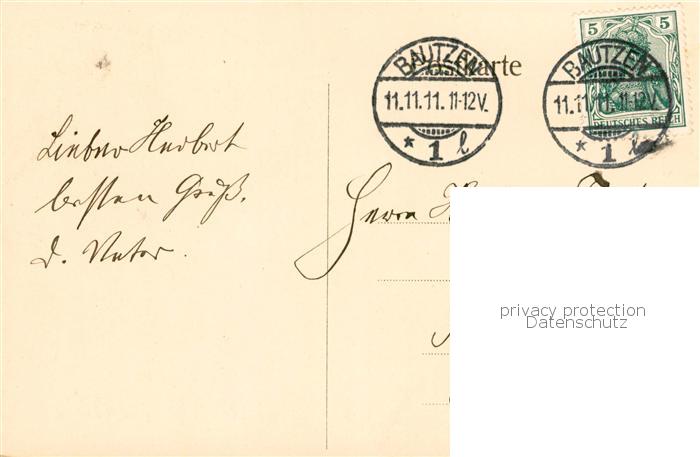 Postkarte
BAUTZEN
11.11.11. 11-12V.
* 1 l
BAUTZEN
11.11.11. 11-12V.
* 1 l
5 5
DEUTSCHES REICH
Lieber Herbert
besten Gruß.
d. Vater.
Herrn
privacy protection
Datenschutz